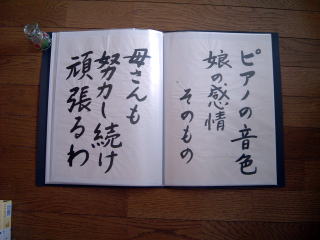 ピアノの音色
娘の感情
そのもの
母さんも
努力し続け
頑張るわ